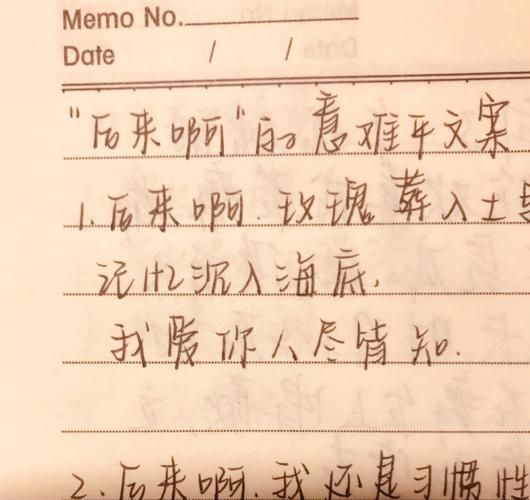 Memo No.
Date / /
"后来啊"的意难平文案
1. 后来啊. 玫瑰葬入土
记忆沉入海底.
我爱你人尽皆知.
2. 后来啊. 我还是习惯性